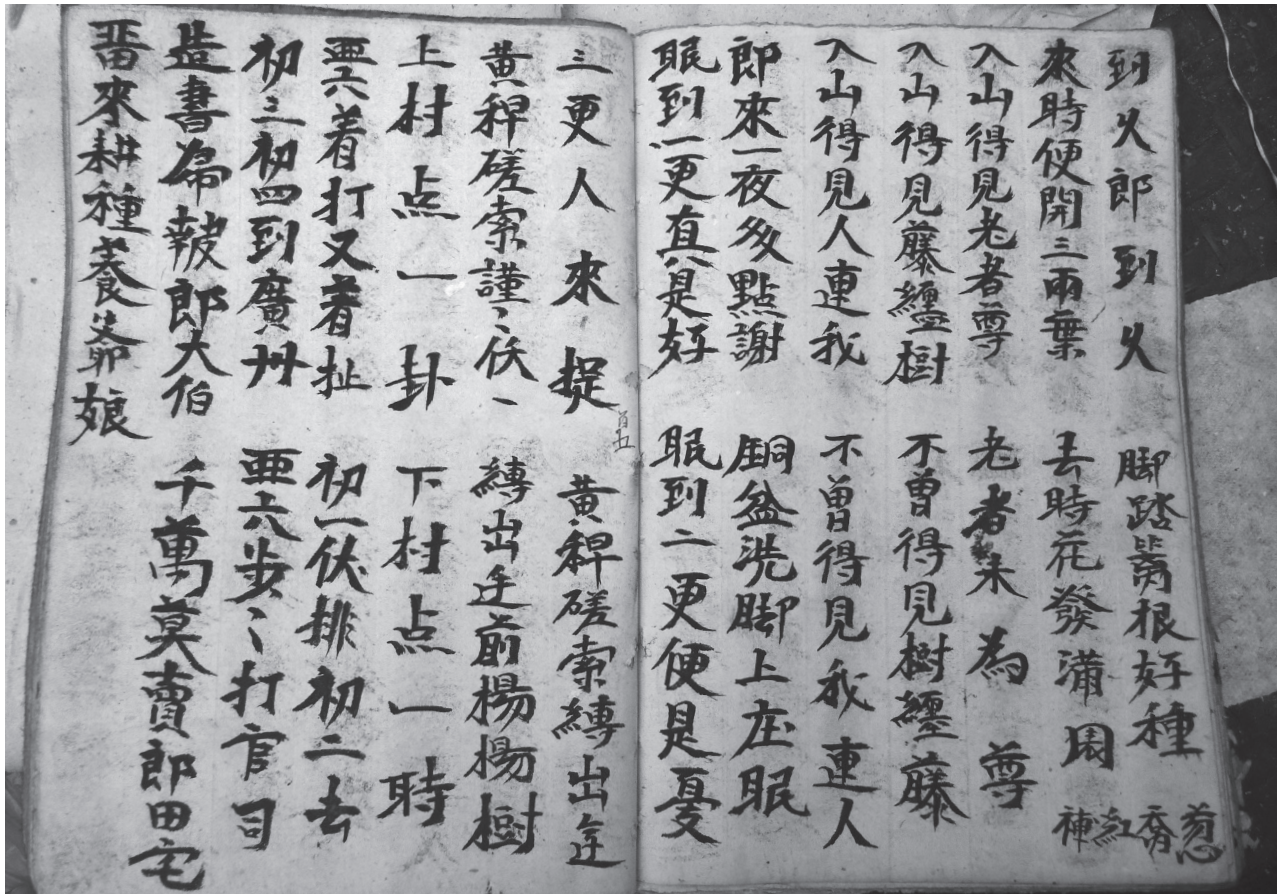 到火郎到火 脚踏萵根好種
葱
喬
紅
神
來時便開三兩葉 去時花發滿周
入山得見老者尊 老者未為尊
入山得見藤纏樹 不曾得見樹纏藤
入山得見人連我 不曾得見我連人
郎來一夜多點謝 銅盆洗脚上庄眠
眠到一更真是好 眠到二更便是憂
三更人來捉 黃稈磋索縛出
黃稈磋索謹〻伏〻 縛出 前楊楊樹
上村点一卦 下村点一時
亜六着打又着扯 初一伏排初二去
初三初四到廣州 亜六步〻打官司
造書 報郎大伯 千萬莫賣郎田宅
畱來耕種養爺娘